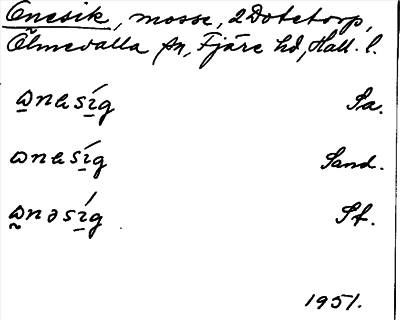 Onesik, mosse, 2 Dotetorp,
Ölmevalla sn, Fjäre hd, Hall. l.
ꞷnesíg Sa.
ꞷnesíg Sand.
ꞷ̰nəsíg Sf.
1951.